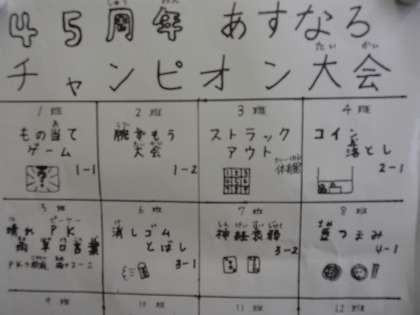 45周年 あすなろ
チャンピオン大会
1 班
もの当て
ゲーム
1-1
2 班
腕ずもう
大会
1-2
3 班
ストラック
アウト
体育館
4 班
コイン
落とし
2-1
5 班
晴れ PK
雨
6 班
消しゴム
とばし
3-1
7 班
神経衰弱
3-2
8 班
豆つまみ
4-1
9 班
10 班
11 班
12 班